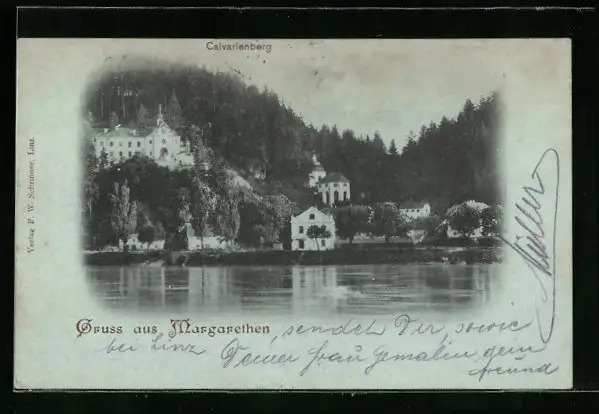 Calvarienberg
Verlag F. W. Schrinner, Linz.
Gruss aus Margarethen, sendet Dir, sowie
bei Linz Deiner frau Gemalin, dein
freund
Müller